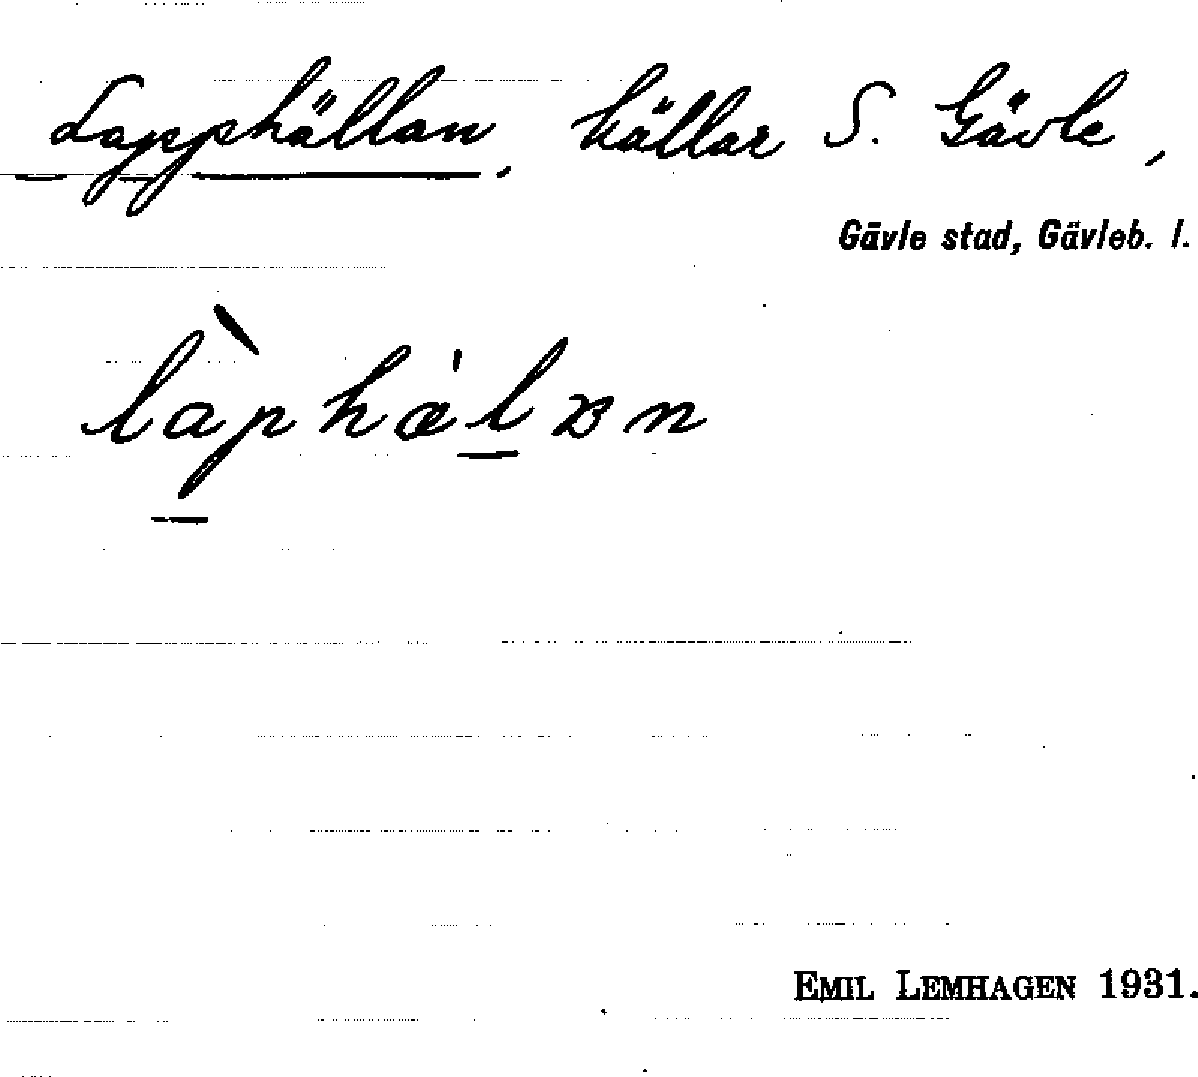 Lapphällan, hällar S. Gävle,
Gävle stad, Gävleb. l.
làphæ̀lɷn
EMIL LEMHAGEN 1931.